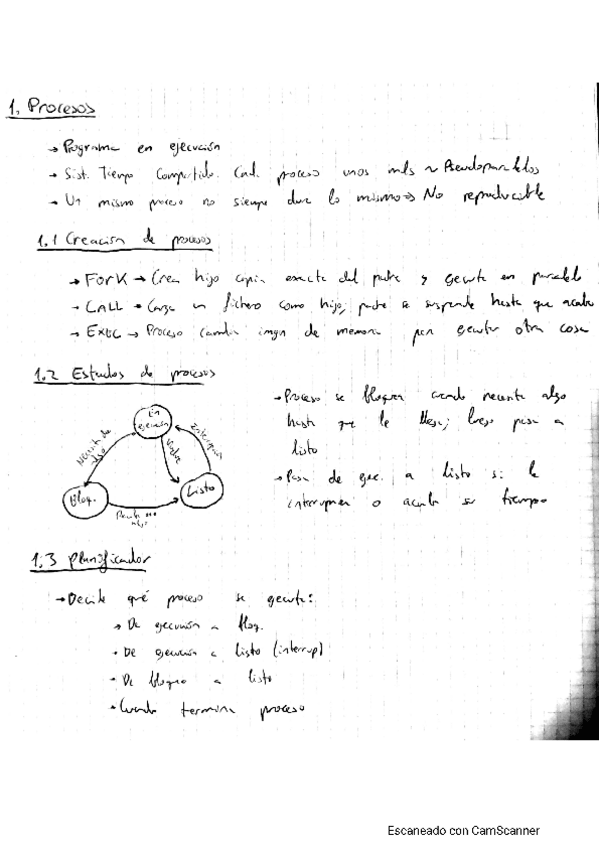 1. Procesos
→ Programa en ejecución
→ Sist. Tiempo Compartido. Cada proceso unos mls ~ Pseudoparalelos
→ Un mismo proceso no siempre dura lo mismo → No reproducible
1.1 Creación de procesos
→ FORK → Crea hijo copia exacta del padre y ejecuta en paralelo
→ CALL → Carga un fichero como hijo; padre se suspende hasta que acabe
→ EXEC → Proceso cambia imagen de memoria para ejecutar otra cosa
1.2 Estados de procesos
En
ejecución
Necesita de
algo
Interrupción
Bloq.
Listo
→ Proceso se bloquea cuando necesita algo
hasta que le llega; luego pasa a
listo
→ Pasa de ejec. a listo si le
interrumpen o acaba su tiempo
1.3 Planificador
→ Decide qué proceso se ejecuta:
→ De ejecución a bloq.
→ De ejecución a listo (interrup)
→ De bloqueo a listo
→ Cuando termina proceso
Escaneado con CamScanner